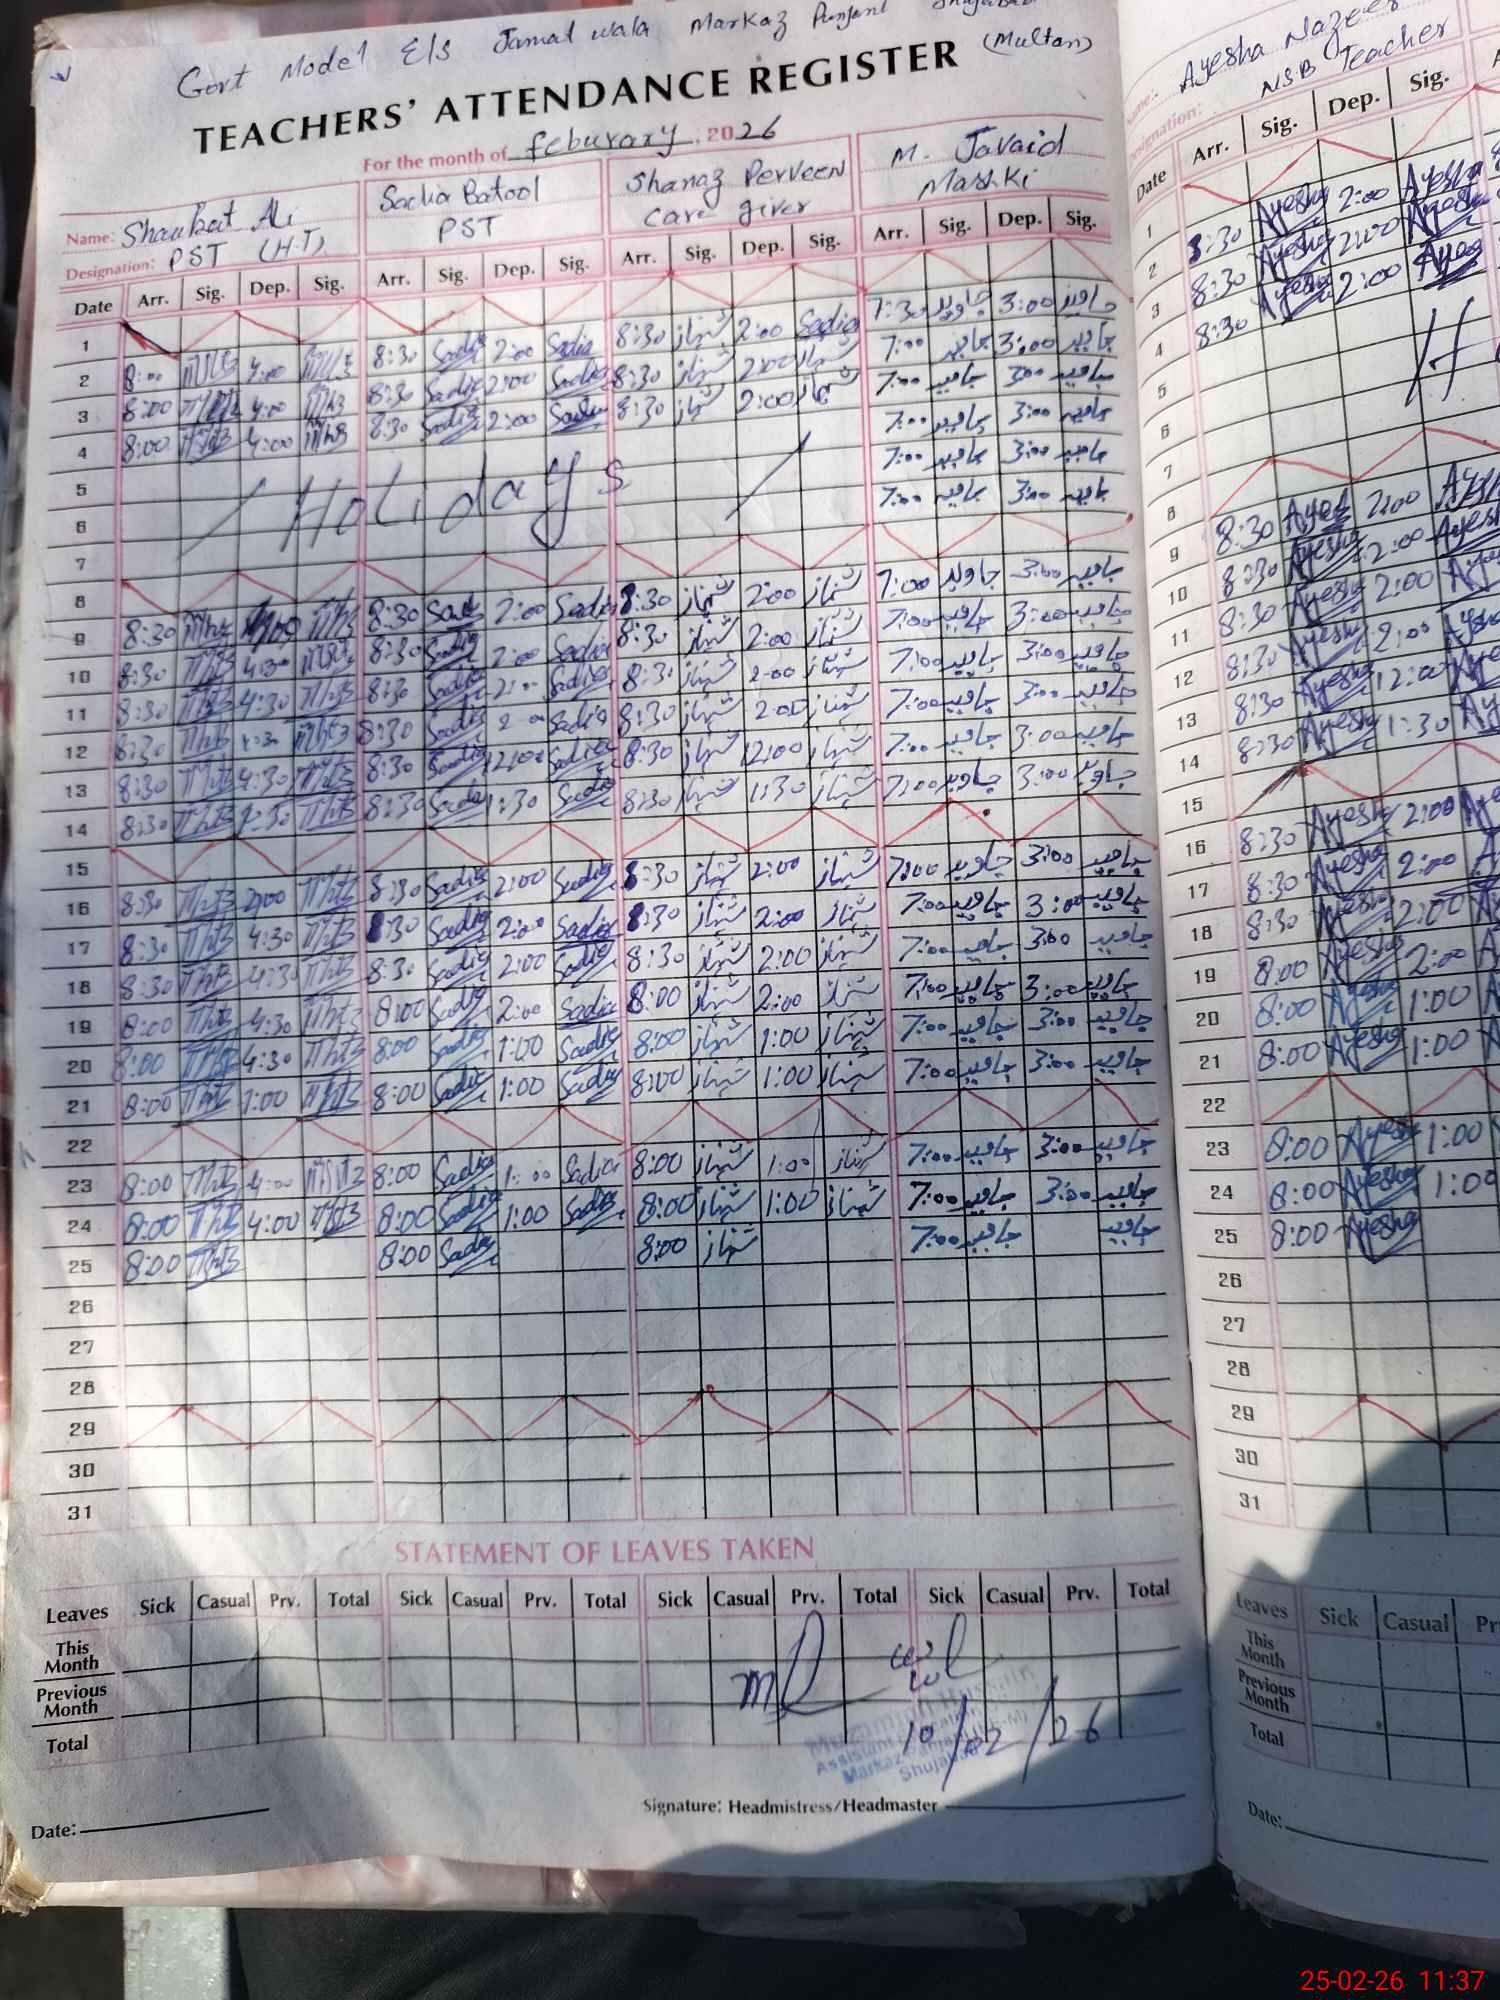 Govt Model E/S Jamal wala Markaz
(Multan)
TEACHERS' ATTENDANCE REGISTER
For the month of feburary, 2026
Name: Shaukat Ali Sadia Batool Shanaz Perveen M. Javaid
Designation: PST (H.T) PST care giver Mashki
Date Arr. Sig. Dep. Sig. Arr. Sig. Dep. Sig. Arr. Sig. Dep. Sig. Arr. Sig. Dep. Sig.
1
2 8:00 4:00 8:30 Sadia 2:00 Sadia 8:30 شہناز 2:00 Sadia 7:30 جاوید 3:00 جاوید
3 8:00 4:00 8:30 Sadia 2:00 Sadia 8:30 شہناز 2:00 شہناز 7:00 جاوید 3:00 جاوید
4 8:00 4:00 8:30 Sadia 2:00 Sadia 8:30 شہناز 2:00 شہناز 7:00 جاوید 3:00 جاوید
5 / Holidays / 7:00 جاوید 3:00 جاوید
6 7:00 جاوید 3:00 جاوید
7 7:00 جاوید 3:00 جاوید
8
9 8:30 8:30 Sadia 2:00 Sadia 8:30 شہناز 2:00 شہناز 7:00 جاوید 3:00 جاوید
10 8:30 4:30 8:30 Sadia 2:00 Sadia 8:30 شہناز 2:00 شہناز 7:00 جاوید 3:00 جاوید
11 8:30 4:30 8:30 Sadia 2:00 Sadia 8:30 شہناز 2:00 شہناز 7:00 جاوید 3:00 جاوید
12 8:30 4:30 8:30 Sadia 2:00 Sadia 8:30 شہناز 2:00 شہناز 7:00 جاوید 3:00 جاوید
13 8:30 4:30 8:30 Sadia 12:00 Sadia 8:30 شہناز 12:00 شہناز 7:00 جاوید 3:00 جاوید
14 8:30 8:30 Sadia 1:30 Sadia 8:30 شہناز 1:30 شہناز 7:00 جاوید 3:00 جاوید
15
16 8:30 8:30 Sadia 2:00 Sadia 8:30 شہناز 2:00 شہناز 7:00 جاوید 3:00 جاوید
17 8:30 4:30 8:30 Sadia 2:00 Sadia 8:30 شہناز 2:00 شہناز 7:00 جاوید 3:00 جاوید
18 8:30 4:30 8:30 Sadia 2:00 Sadia 8:30 شہناز 2:00 شہناز 7:00 جاوید 3:00 جاوید
19 8:00 4:30 8:00 Sadia 2:00 Sadia 8:00 شہناز 2:00 شہناز 7:00 جاوید 3:00 جاوید
20 8:00 4:30 8:00 Sadia 1:00 Sadia 8:00 شہناز 1:00 شہناز 7:00 جاوید 3:00 جاوید
21 8:00 1:00 8:00 Sadia 1:00 Sadia 8:00 شہناز 1:00 شہناز 7:00 جاوید 3:00 جاوید
22
23 8:00 4:00 8:00 Sadia 1:00 Sadia 8:00 شہناز 1:00 شہناز 7:00 جاوید 3:00 جاوید
24 8:00 4:00 8:00 Sadia 1:00 Sadia 8:00 شہناز 1:00 شہناز 7:00 جاوید 3:00 جاوید
25 8:00 8:00 Sadia 8:00 شہناز 7:00 جاوید جاوید
26
27
28
29
30
31
STATEMENT OF LEAVES TAKEN
Leaves Sick Casual Prv. Total Sick Casual Prv. Total Sick Casual Prv. Total Sick Casual Prv. Total
This Month
Previous Month
Total
10/02/26
Assistant
Markaz
Shujabad
Signature: Headmistress/Headmaster
Date:
Name: Ayesha Nazeer
Designation: NSB Teacher
Date Arr. Sig. Dep. Sig.
1
2 8:30 Ayesha 2:00 Ayesha
3 8:30 Ayesha 2:00 Ayesha
4 8:30 Ayesha 2:00
5 H
6
7
8
9 8:30 Ayesha 2:00
10 8:30 Ayesha 2:00 Ayesha
11 8:30 Ayesha 2:00
12 8:30 Ayesha 2:00
13 8:30 Ayesha 12:00
14 8:30 Ayesha 1:30
15
16 8:30 Ayesha 2:00
17 8:30 Ayesha 2:00
18 8:30 Ayesha 2:00
19 8:00 Ayesha 2:00
20 8:00 Ayesha 1:00
21 8:00 Ayesha 1:00
22
23 8:00 Ayesha 1:00
24 8:00 Ayesha 1:00
25 8:00 Ayesha
26
27
28
29
30
31
Leaves Sick Casual
This Month
Previous Month
Total
Date:
25-02-26 11:37